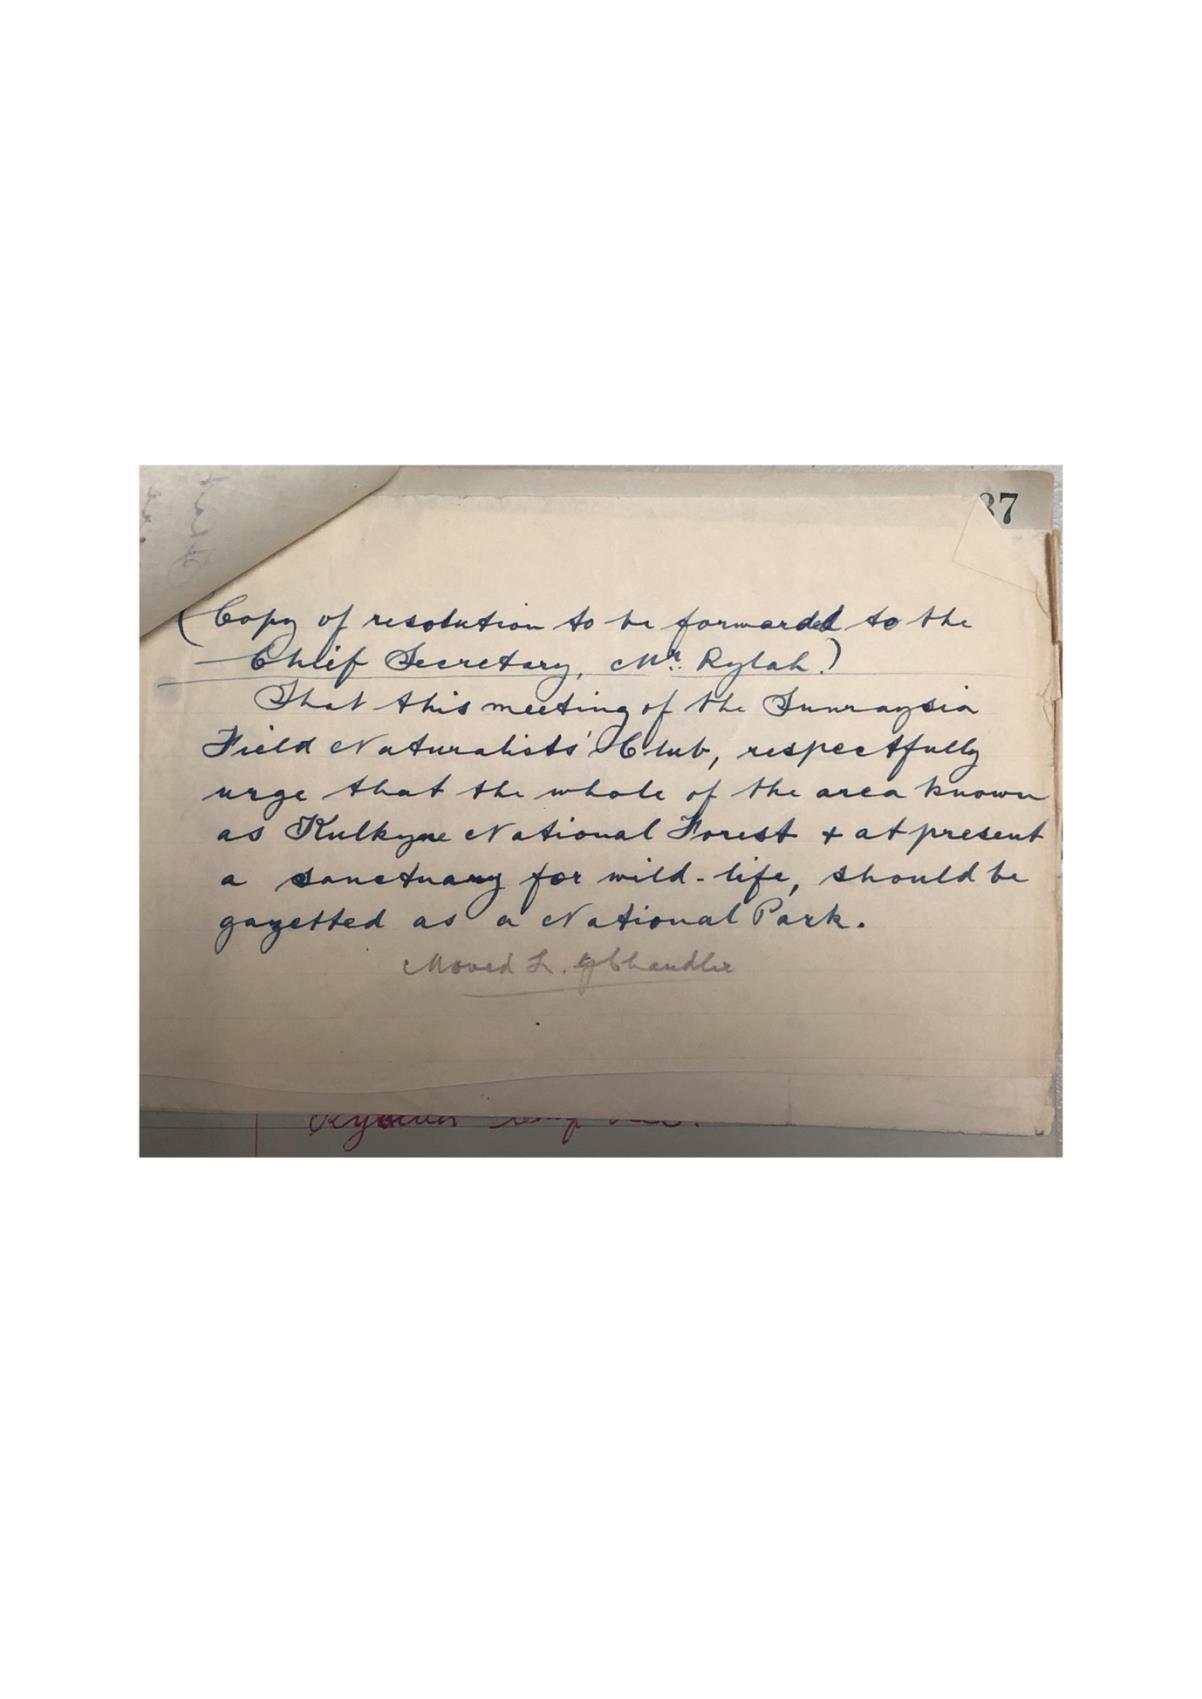 37
(Copy of resolution to be forwarded to the
Chief Secretary, Mr. Rylah.)
That this meeting of the Sunraysia
Field Naturalists' Club, respectfully
urge that the whole of the area known
as Kulkyne National Forest + at present
a sanctuary for wild-life, should be
gazetted as a National Park.
Moved L. G Chandler